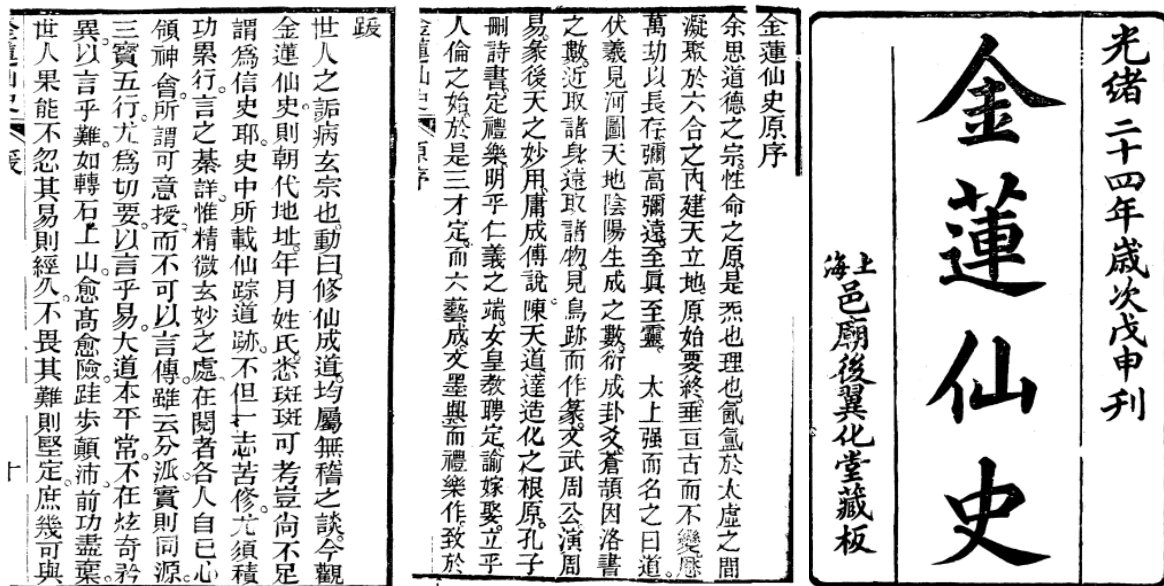 光緒二十四年歲次戊申刊
金蓮仙史
上海邑廟後翼化堂藏板
金蓮仙史原序
余思道德之宗性命之原是炁也理也氤氳於太虛之間
凝聚於六合之內建天立地原始要終垂亘古而不變歷
萬劫以長存彌高彌遠至眞至靈　太上强而名之曰道
伏羲見河圖天地陰陽生成之數衍成卦爻蒼頡因洛書
之數近取諸身遠取諸物見鳥跡而作篆文武周公演周
易彖後天之妙用庸成傅說陳天道達造化之根原孔子
刪詩書定禮樂明乎仁義之端女皇教聘定諭嫁娶立乎
人倫之始於是三才定而六藝成文墨興而禮樂作致於
金蓮仙史　原序
跋
世人之詬病玄宗也動曰修仙成道均屬無稽之談今觀
金蓮仙史則朝代地址年月姓氏悉斑斑可考豈尙不足
謂爲信史耶史中所載仙踪道跡不但一志苦修尤須積
功累行言之綦詳惟精微玄妙之處在閱者各人自已心
領神會所謂可意授而不可以言傳雖云分派實則同源
三寶五行尤爲切要以言乎易大道本平常不在炫奇矜
異以言乎難如轉石上山愈高愈險跬步顚沛前功盡棄
世人果能不忽其易則經久不畏其難則堅定庶幾可與
金蓮仙史　跋　十